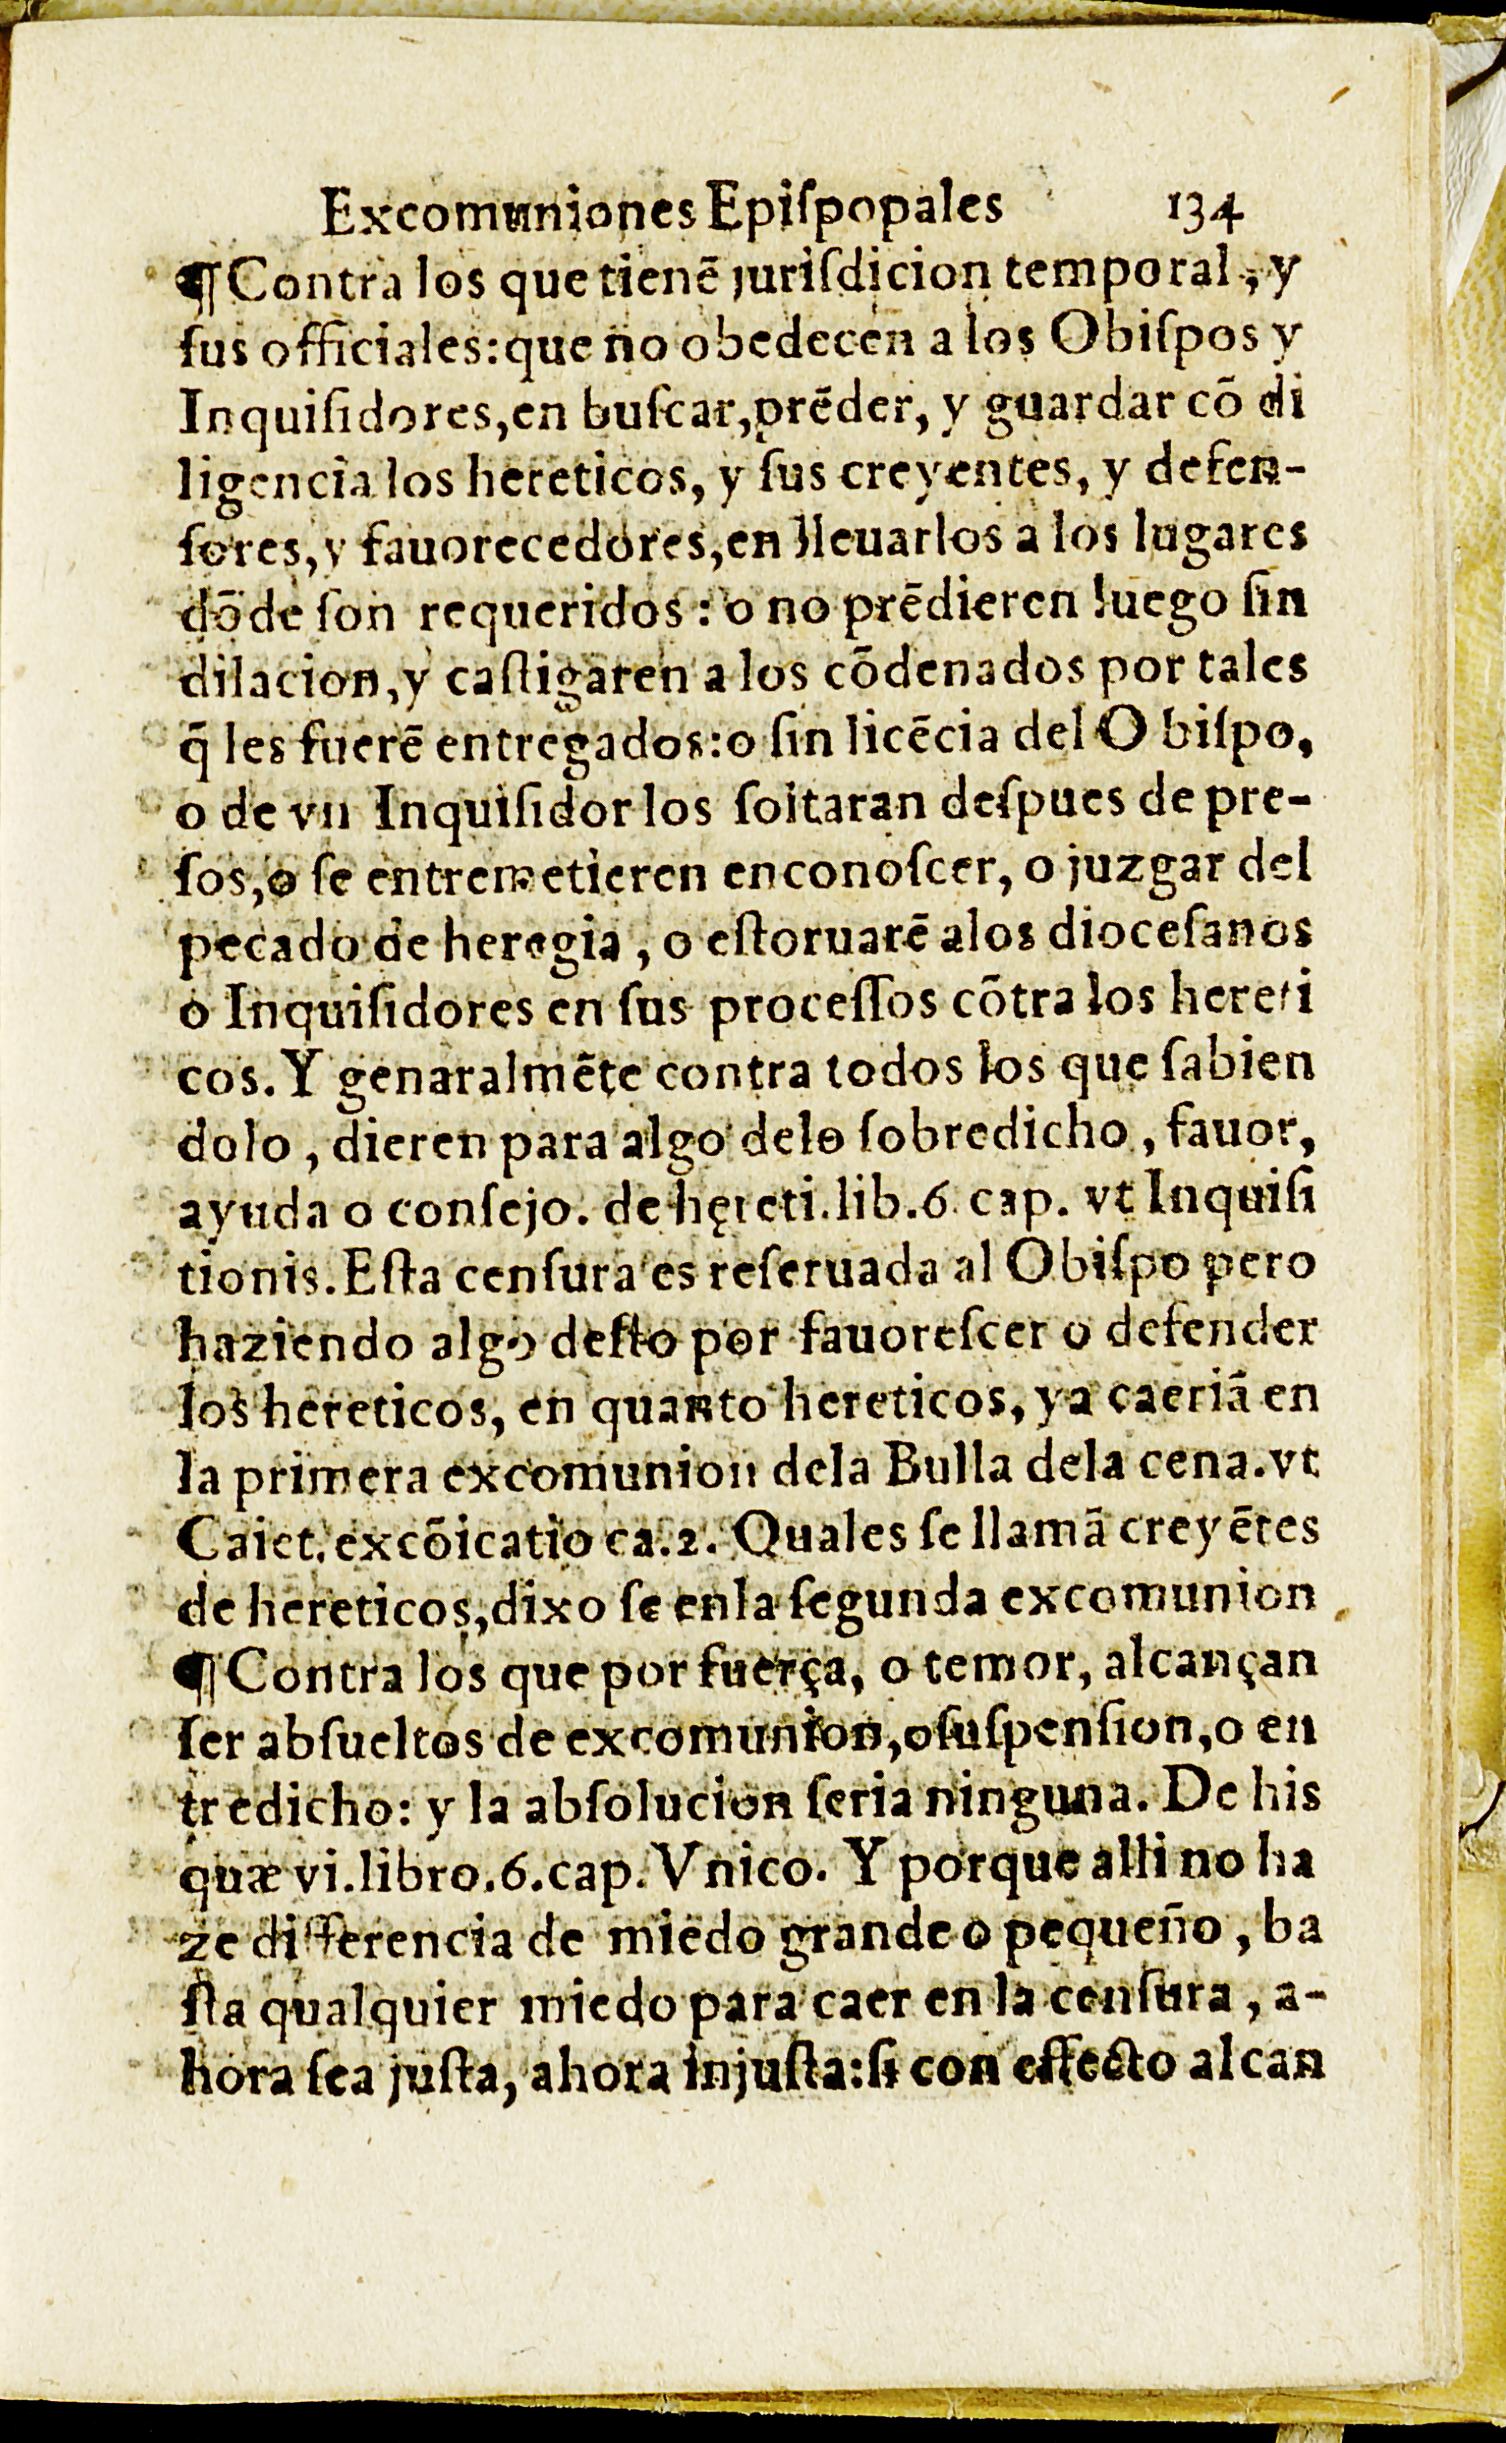 Excomuniones Epiſpopales 134
¶ Contra los que tienẽ juriſdicion temporal, y
ſus officiales: que no obedecen a los Obiſpos y
Inquiſidores, en buſcar, prẽder, y guardar cõ di
ligencia los hereticos, y ſus creyentes, y defen-
ſores, y fauorecedores, en lleuarlos a los lugares
dõde ſon requeridos: o no prẽdieren luego ſin
dilacion, y caſtigaren a los cõdenados por tales
q̃ les fuerẽ entregados: o ſin licẽcia del O biſpo,
o de vn Inquiſidor los ſoltaran deſpues de pre-
ſos, o ſe entremetieren enconoſcer, o juzgar del
pecado de heregia, o eſtoruarẽ alos dioceſanos
o Inquiſidores en ſus proceſſos cõtra los hereti
cos. Y genaralmẽte contra todos los que ſabien
dolo, dieren para algo delo ſobredicho, fauor,
ayuda o conſejo. de hęreti. lib. 6. cap. vt Inquiſi
tionis. Eſta cenſura es reſeruada al Obiſpo pero
haziendo algo deſto por fauoreſcer o defender
los hereticos, en quanto hereticos, ya caeriã en
la primera excomunion dela Bulla dela cena. vt
Caiet. excõicatio ca. 2. Quales ſe llamã creyẽtes
de hereticos, dixo ſe enla ſegunda excomunion
¶ Contra los que por fuerça, o temor, alcançan
ſer abſueltos de excomunion, oſuſpenſion, o en
tredicho: y la abſolucion ſeria ninguna. De his
quæ vi. libro. 6. cap. Vnico. Y porque alli no ha
ze differencia de miedo grande o pequeño, ba
ſta qualquier miedo para caer en la cenſura, a-
hora ſea juſta, ahora injuſta: ſi con effecto alcan